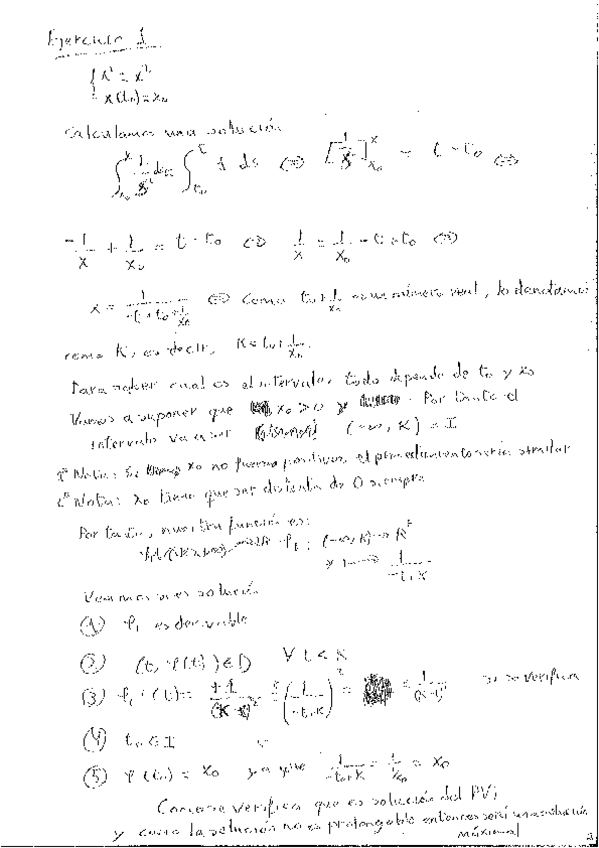 Ejercicio 1
{ x' = x²
x(t₀) = x₀
Calculamos una solución
∫ 1/s² ds = ∫ 1 ds ⇔ [ ]ₓ₀ˣ = t - t₀ ⇔
-1/x + 1/x₀ = t - t₀ ⇔ 1/x = 1/x₀ - t + t₀ ⇔
x = 1/(-t + t₀ + 1/x₀) ⇔ Como t₀ + 1/x₀ es un número real, lo denotamos
como K, es decir, K = t₀ + 1/x₀.
Para saber cual es el intervalo, todo depende de t₀ y x₀
Vamos a suponer que x₀ > 0 y . Por tanto el
intervalo va a ser (-∞, K) = I
1ª Nota: Si x₀ no fuera positivo, el procedimiento sería similar
2ª Nota: x₀ tiene que ser distinto de 0 siempre
Por tanto, nuestra función es:
φ₁ : (-∞, K) → R
→ 1/(-t+K)
Veamos si es solución
① φ₁ es derivable
② (t, φ(t)) ∈ D ∀ t < K
③ φ₁'(t) = +1/(K-t)² = (1/(-t+K))² = 1/(K-t)² sí se verifica
④ t₀ ∈ I
⑤ φ(t₀) = x₀ ya que 1/(-t₀+K) = 1/(1/x₀) = x₀
Como se verifica que es solución del PVI
y como la solución no es prolongable entonces será una solución
máximal